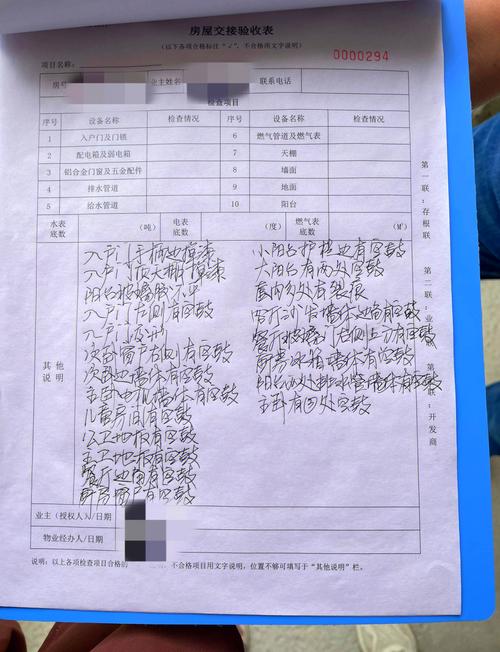 房屋交接验收表
（以下各项合格标注“√”，不合格用文字说明）
项目名称：
0000294
房号 业主姓名 联系电话
检查项目
序号 设备名称 检查情况 序号 设备名称 检查情况
1 入户门及门锁 6 燃气管道及燃气表
2 配电箱及弱电箱 7 天棚
3 铝合金门窗及五金配件 8 墙面
4 排水管道 9 地面
5 给水管道 10 阳台
水表底数 （吨） 电表底数 （度） 燃气表底数 （M³）
其他说明
入户门手柄边掉漆
入户门顶天棚掉漆
阳台被墙 不平
入户门右侧有空鼓
入户门变形
次卧窗户右侧有空鼓
次卧边墙体有空鼓
主卧电视墙体有空鼓
儿童房间有空鼓
公卫地板有空鼓
主卫地板有空鼓
餐厅边角有空鼓
厨房窗户有空鼓
小阳台护栏边有空鼓
大阳台有两处空鼓
屋内多处有裂痕
客厅沙发墙体边角有空鼓
餐厅 门右侧上方有空鼓
厨房冰箱墙体有空鼓
阳台两处排水管墙体有空鼓
主卧有四处空鼓
第一联：存根联
第二联：业
：开发商
业主（授权人）/日期
物业经办人/日期
说明：以上各项检查项目合格的 不合格项目用文字说明，位置不够可填写于“其他说明”栏。